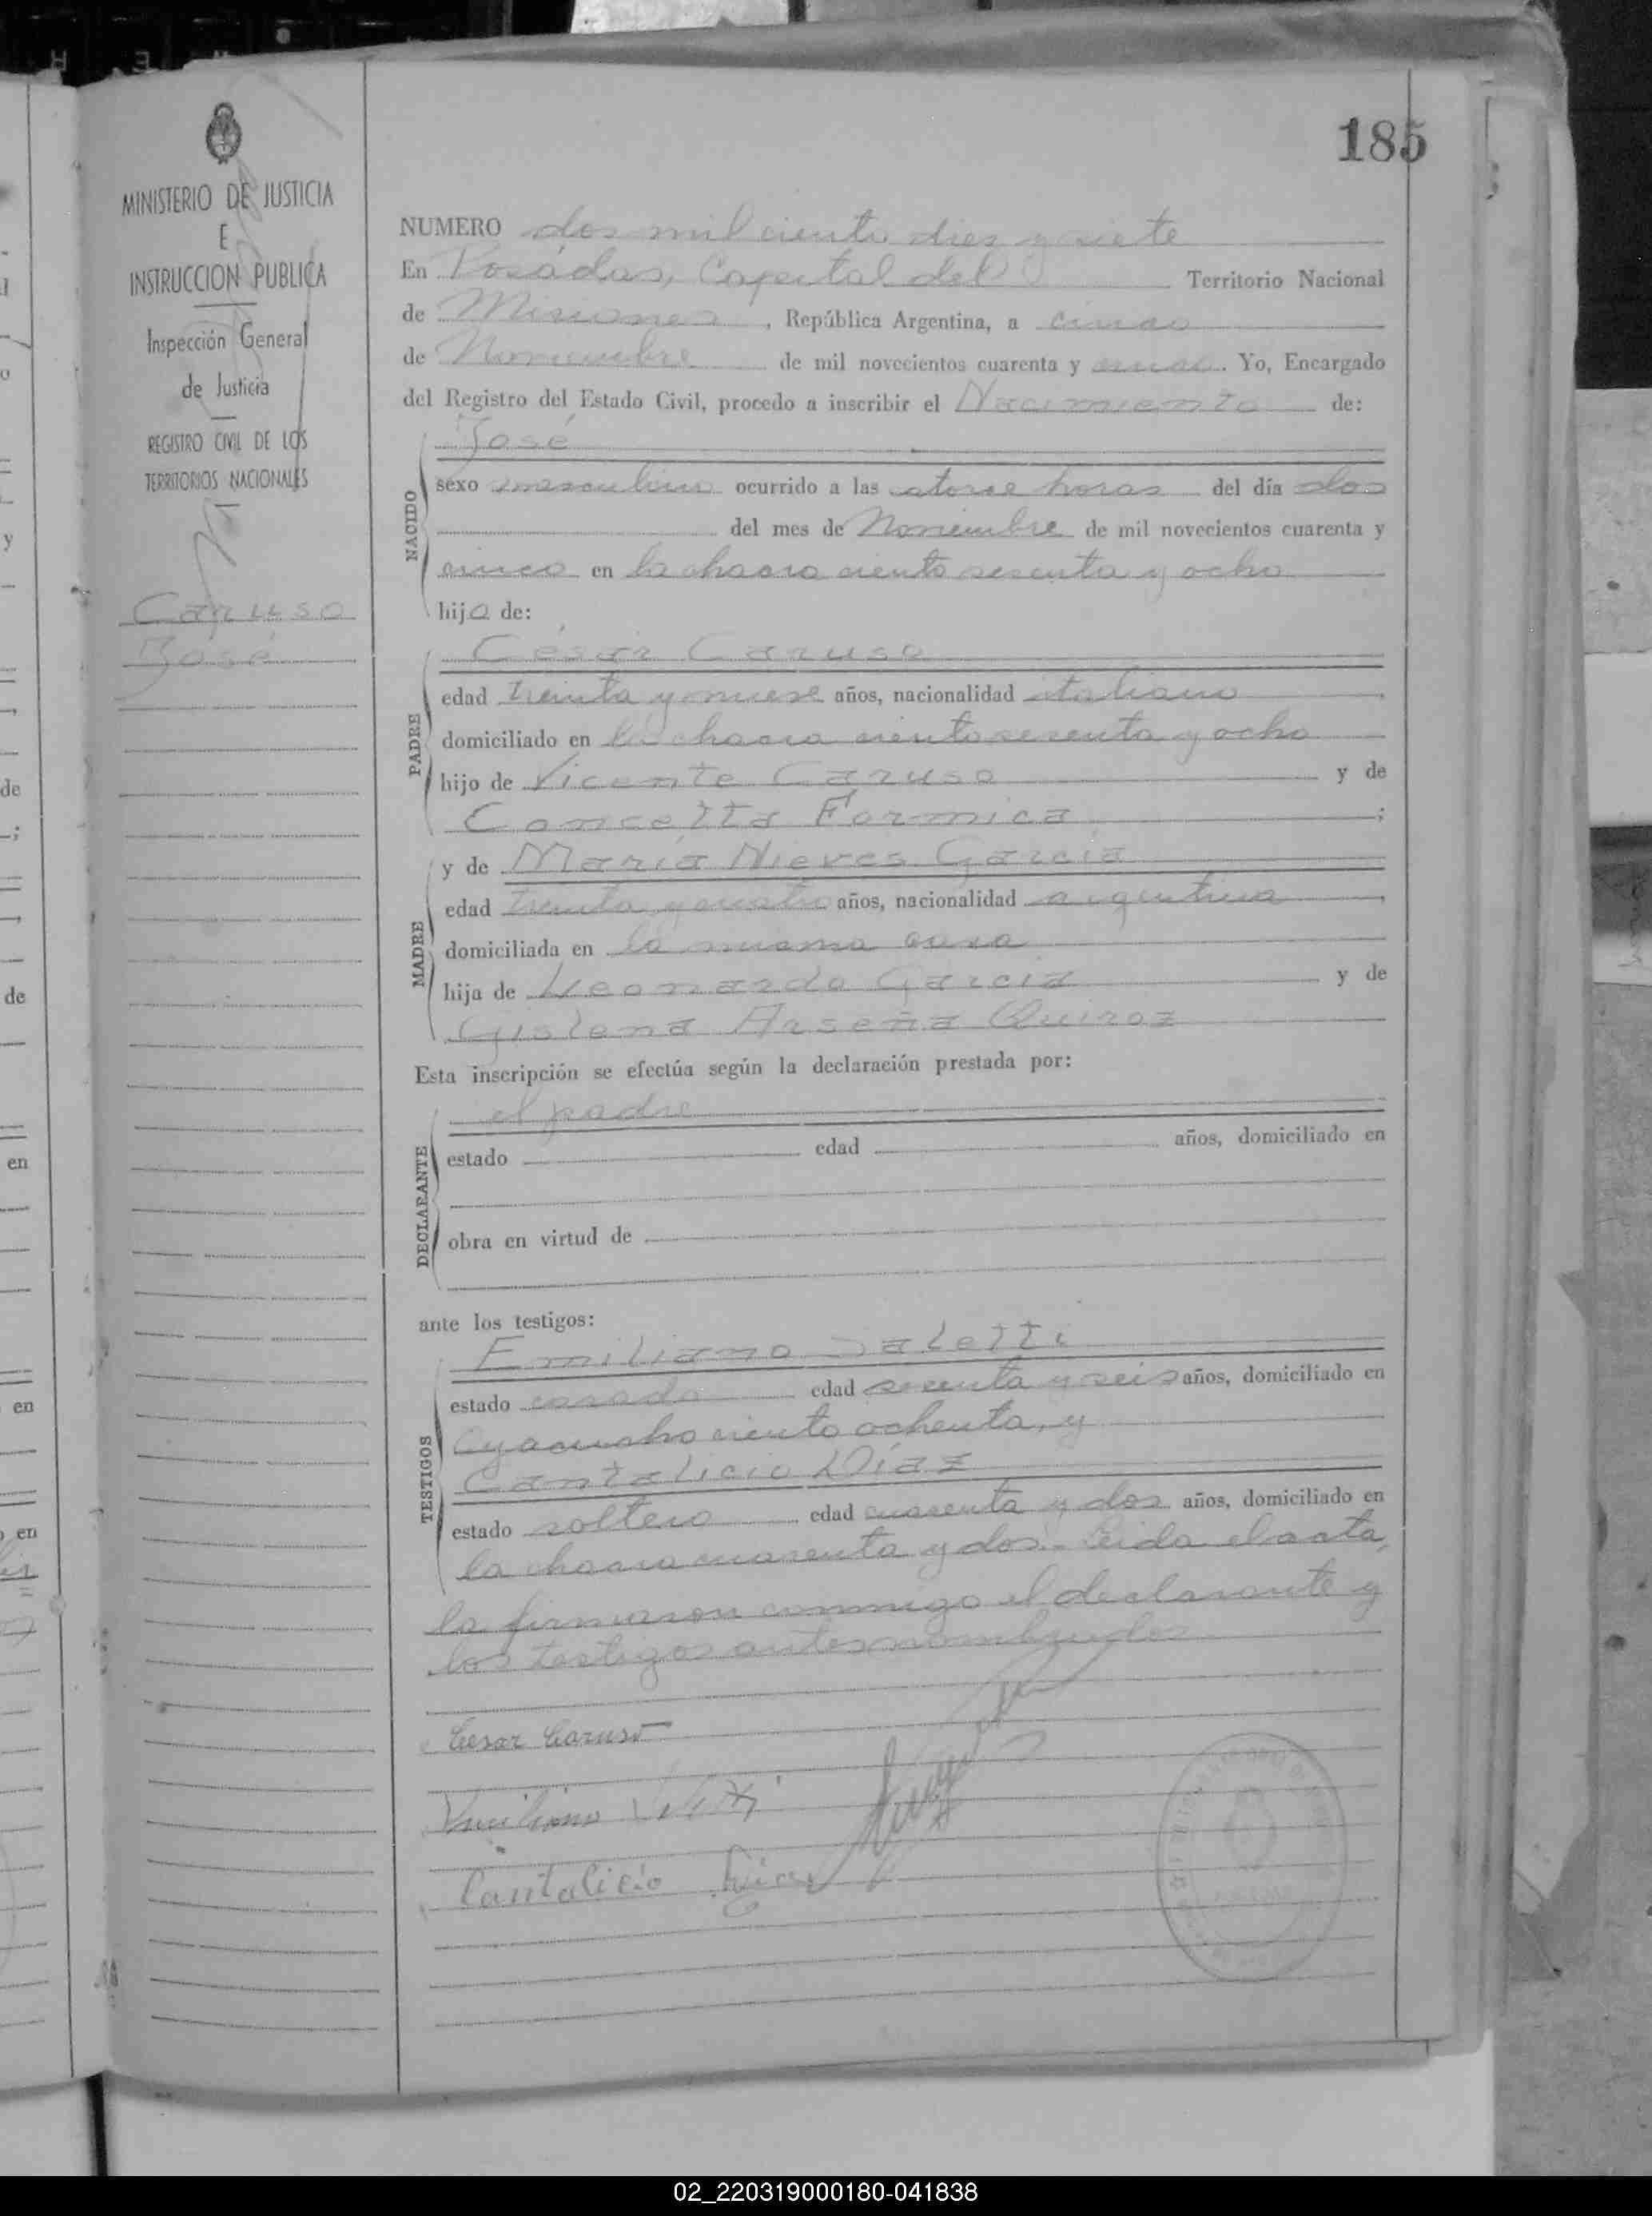 185
MINISTERIO DE JUSTICIA
E
INSTRUCCION PUBLICA
Inspección General
de Justicia
REGISTRO CIVIL DE LOS
TERRITORIOS NACIONALES
Caruso
José
NUMERO dos mil ciento dies y siete
En Posadas, Capital del Territorio Nacional
de Misiones, República Argentina, a cinco
de Noviembre de mil novecientos cuarenta y cinco. Yo, Encargado
del Registro del Estado Civil, procedo a inscribir el Nacimiento de:
José
NACIDO
sexo masculino ocurrido a las catorse horas del día dos
del mes de Noviembre de mil novecientos cuarenta y
cinco en la chacra ciento sesenta y ocho
hijo de:
César Caruso
PADRE
edad treinta y nueve años, nacionalidad italiano
domiciliado en la chacra ciento sesenta y ocho
hijo de Vicente Caruso y de
Concetta Formica;
y de María Nieves García
MADRE
edad treinta y cuatro años, nacionalidad argentina,
domiciliada en la misma casa
hija de Leonardo García y de
Gislena Arseña Quiroz
Esta inscripción se efectúa según la declaración prestada por:
el padre
DECLARANTE
estado edad años, domiciliado en
obra en virtud de
ante los testigos:
Emiliano Saletti
TESTIGOS
estado casado edad sesenta y seis años, domiciliado en
Ayacucho ciento ochenta, y
Cantalicio Díaz
estado soltero edad cuarenta y dos años, domiciliado en
la chacra cuarenta y dos.- Leida el acta,
la firmaron conmigo el declarante y
los testigos antes nombrados
Cesar Caruso
Emiliano
Cantalicio Díaz
02_220319000180-041838